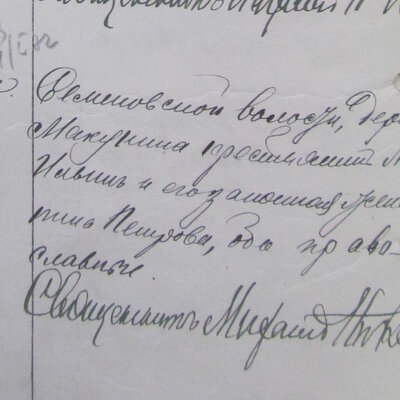 Семеновской волости, Дер
Макунина крестьянин
Ильинъ и его законная жен
Петрова, оба право-
славные.
Священникъ Михаилъ